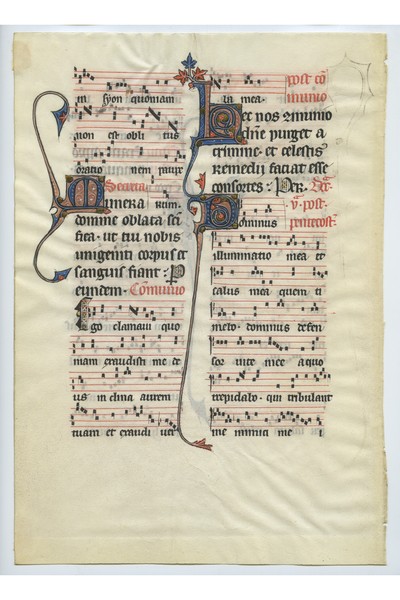 in syon quoniam
non est obli tus
oratio nem paupe
Secreta
Munera rum·
domine oblata sci
fica· ut tui nobis
unigeniti corpus et
sanguis fiant: P
eundem· Cōmunio
Ego clamaui quo
niam exaudisti me de
us in clina aurem
tuam et exaudi uer
ba mea· post cō
munio
Hec nos ꝯmunio
dñe purget a
crimine· et celestis
remedii faciat esse
consortes: Per·
v· post·
pentecost·
Dominus
illuminatio mea et
salus mea quem ti
mebo· dominus defen
sor uite mee a quo
trepidabo· qui tribulant
me inimici me i